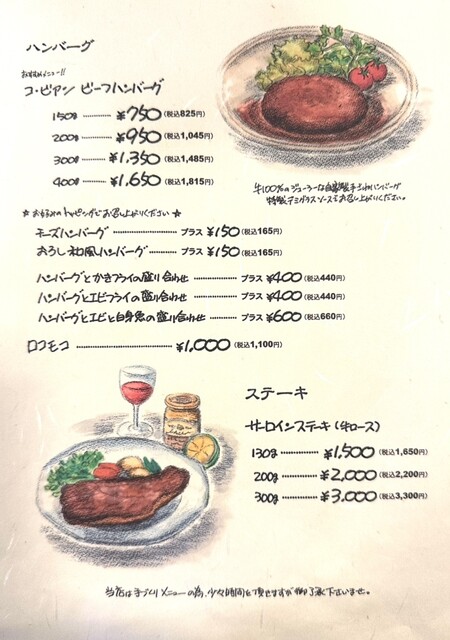 ハンバーグ
おすすめメニュー!!
コ・ビアン ビーフハンバーグ
150g ............ ¥750 (税込825円)
200g ............ ¥950 (税込1,045円)
300g ............ ¥1,350 (税込1,485円)
400g ............ ¥1,650 (税込1,815円)
牛100%のジューシーな自家製手ごねハンバーグ
特製デミグラスソースでお召し上がりください。
★ お好みのトッピングでお召し上がりください ★
チーズハンバーグ ............ プラス ¥150 (税込165円)
おろし和風ハンバーグ ............ プラス ¥150 (税込165円)
ハンバーグとかきフライの盛り合わせ ............ プラス ¥400 (税込440円)
ハンバーグとエビフライの盛り合わせ ............ プラス ¥400 (税込440円)
ハンバーグとエビと白身魚の盛り合わせ ............ プラス ¥600 (税込660円)
ロコモコ ............ ¥1,000 (税込1,100円)
ステーキ
サーロインステーキ (牛ロース)
130g ............ ¥1,500 (税込1,650円)
200g ............ ¥2,000 (税込2,200円)
300g ............ ¥3,000 (税込3,300円)
当店は手づくりメニューの為、少々時間を頂きますが御了承下さいませ。